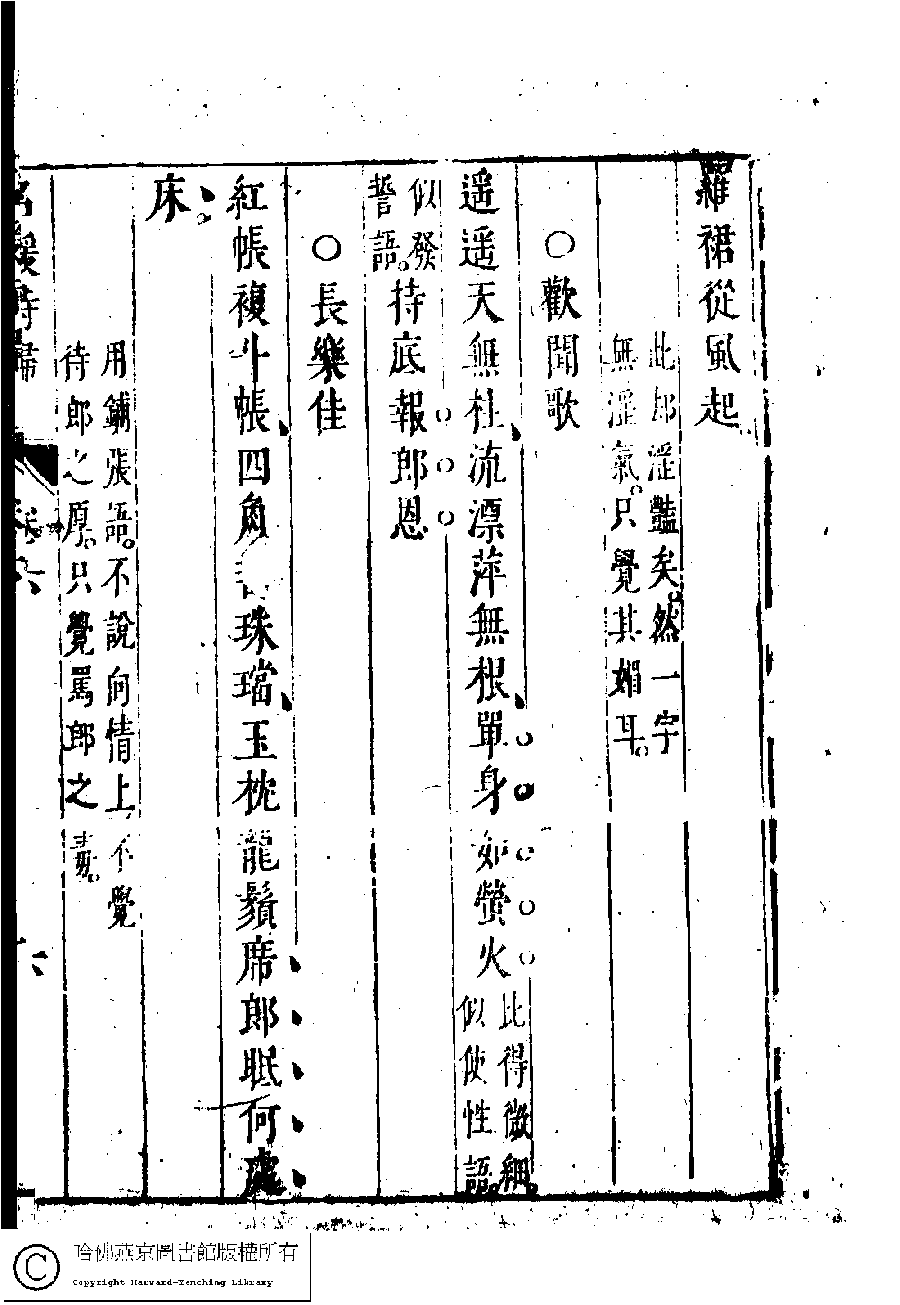 羅裙從風起
此郎淫豔矣。然一字
無淫氣。只覺其媚耳。
○歡聞歌
遥遥天無柱流漂萍無根單身如螢火
比得微細。
似使性語。
似發
誓語。
持底報郎恩
○長樂佳
紅帳複斗帳四角 珠璫玉枕龍鬚席郎眠何處
床
用鋪張語。不說向情上不覺
待郎之厚。只覺罵郎之毒。
名媛詩歸
卷六
六
哈佛燕京圖書館版權所有
Copyright Harvard-Yenching Library